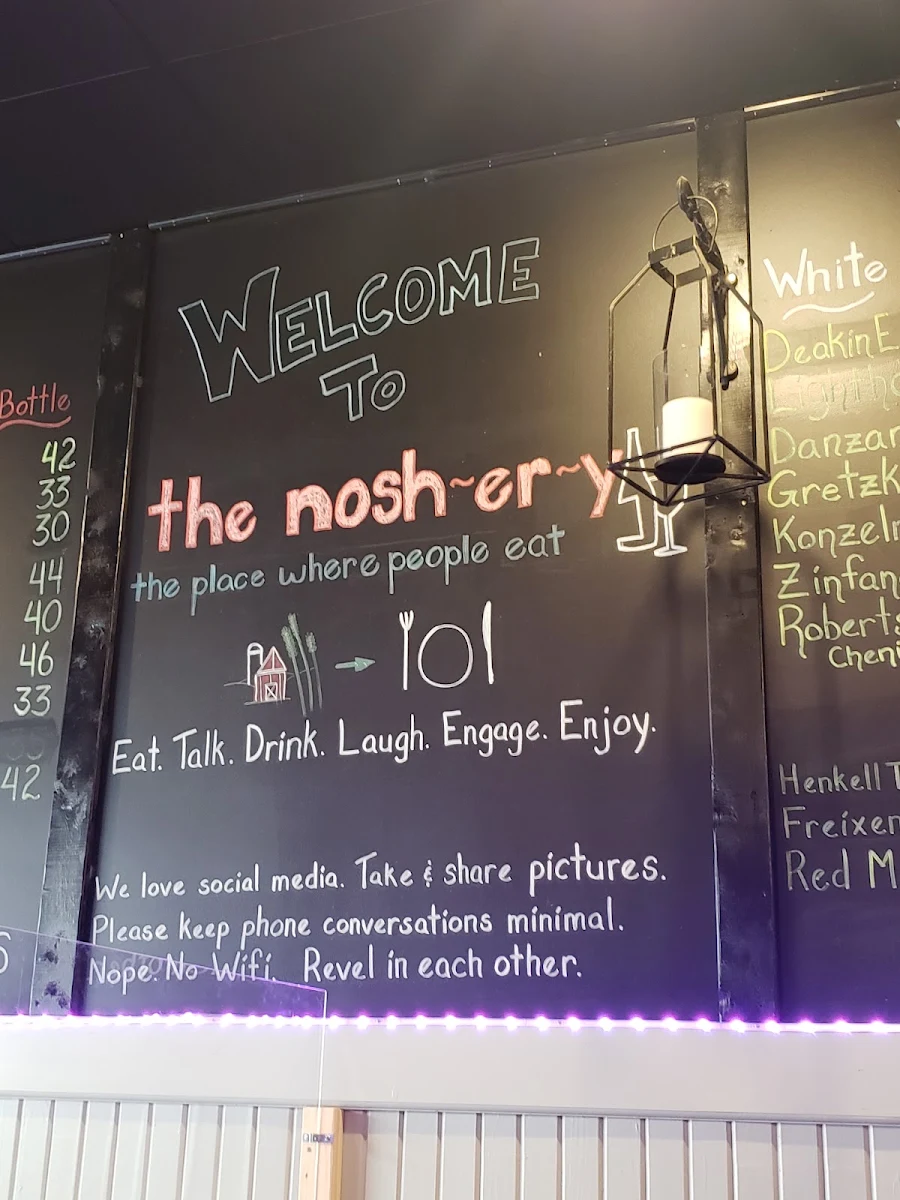 Bottle
42
33
30
44
40
46
33
42
WELCOME
To
the nosh~er~y
the place where people eat
Eat. Talk. Drink. Laugh. Engage. Enjoy.
We love social media. Take & share pictures.
Please keep phone conversations minimal.
Nope. No Wifi. Revel in each other.
White
Deakin E
Danzar
Gretzk
Konzeln
Zinfan
Roberts
Cheni
Henkell T
Freixen
Red M